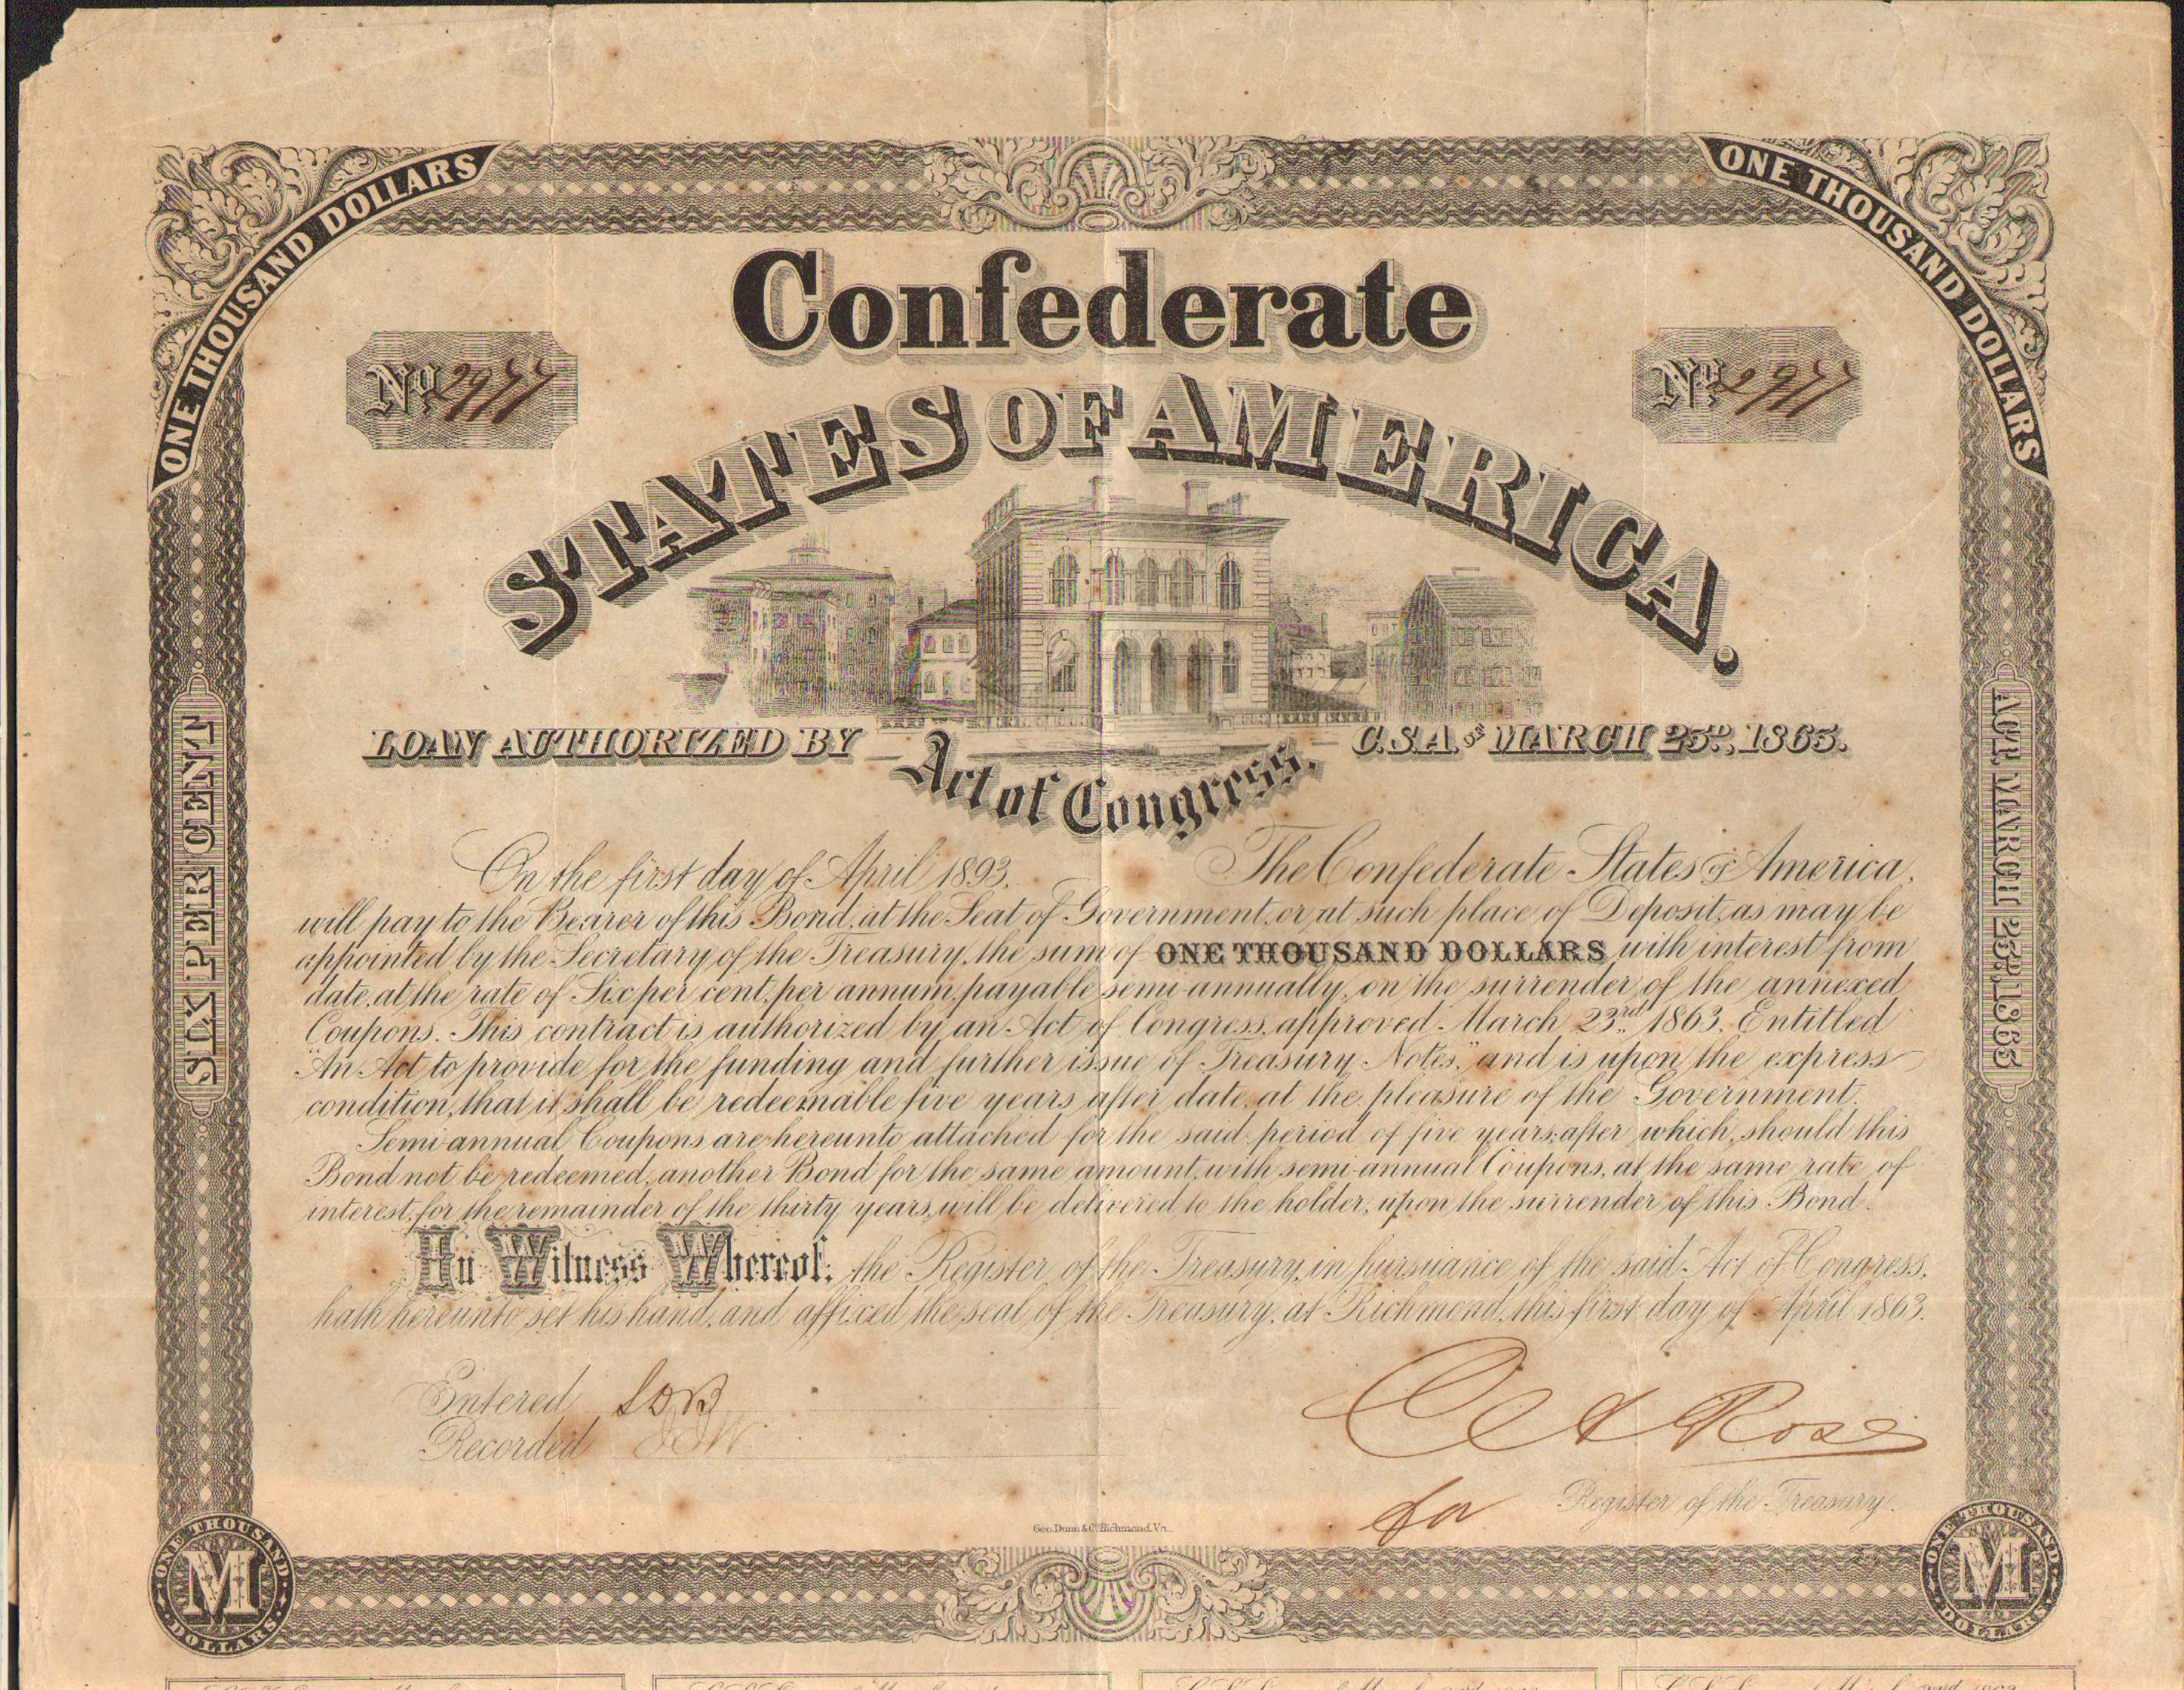 ONE THOUSAND DOLLARS
ONE THOUSAND DOLLARS
Confederate
No. 2977
No. 2977
STATES OF AMERICA.
LOAN AUTHORIZED BY Act of Congress, C.S.A. OF MARCH 23D, 1863.
SIX PER CENT
ACT, MARCH 23D, 1863
On the first day of April 1893. The Confederate States of America,
will pay to the Bearer of this Bond, at the Seat of Government, or at such place of Deposit, as may be
appointed by the Secretary of the Treasury, the sum of ONE THOUSAND DOLLARS with interest from
date, at the rate of Six per cent. per annum, payable semi-annually, on the surrender of the annexed
Coupons. This contract is authorized by an Act of Congress, approved March 23rd 1863, Entitled
"An Act to provide for the funding and further issue of Treasury Notes," and is upon the express
condition, that it shall be redeemable five years after date, at the pleasure of the Government.
Semi annual Coupons are hereunto attached for the said period of five years; after which, should this
Bond not be redeemed, another Bond for the same amount, with semi-annual Coupons, at the same rate of
interest, for the remainder of the thirty years, will be delivered to the holder, upon the surrender of this Bond.
In Witness Whereof, the Register of the Treasury, in pursuance of the said Act of Congress,
hath hereunto set his hand, and affixed the seal of the Treasury, at Richmond, this first day of April 1863.
Entered
Recorded
Rose
for Register of the Treasury.
Geo. Dunn & Co. Richmond, Va.
ONE THOUSAND DOLLARS
M
ONE THOUSAND DOLLARS
M